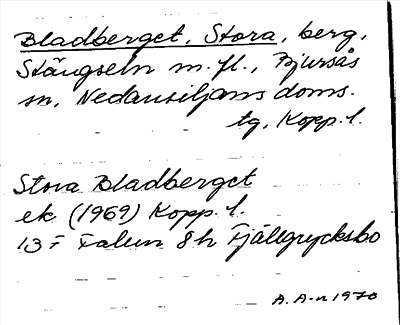 Bladberget, Stora, berg,
Stängseln m.fl., Bjursås
sn, Nedansiljans doms.
tg, Kopp. l.
Stora Bladberget
ek (1969) Kopp. l.
13 F Falun 8h Fjällgrycksbo
A. A-n 1970